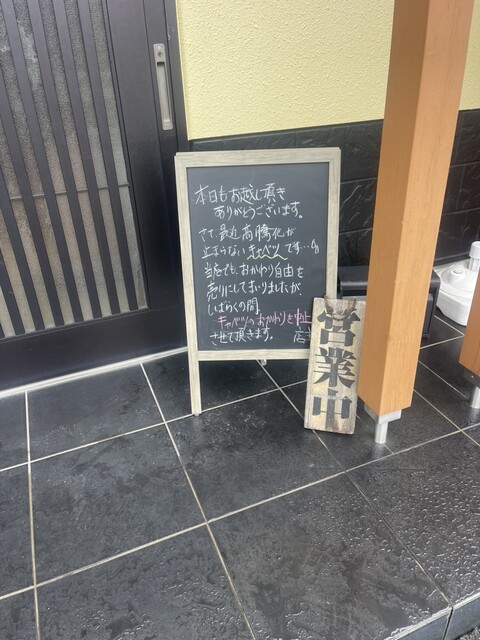 本日もお越し頂き
ありがとうございます。
さて、最近高騰化が
止まらないキャベツです…
当店でも、おかわり自由を
売りにしてまいりましたが、
しばらくの間
キャベツのおかわりを中止
させて頂きます。 店
営業中